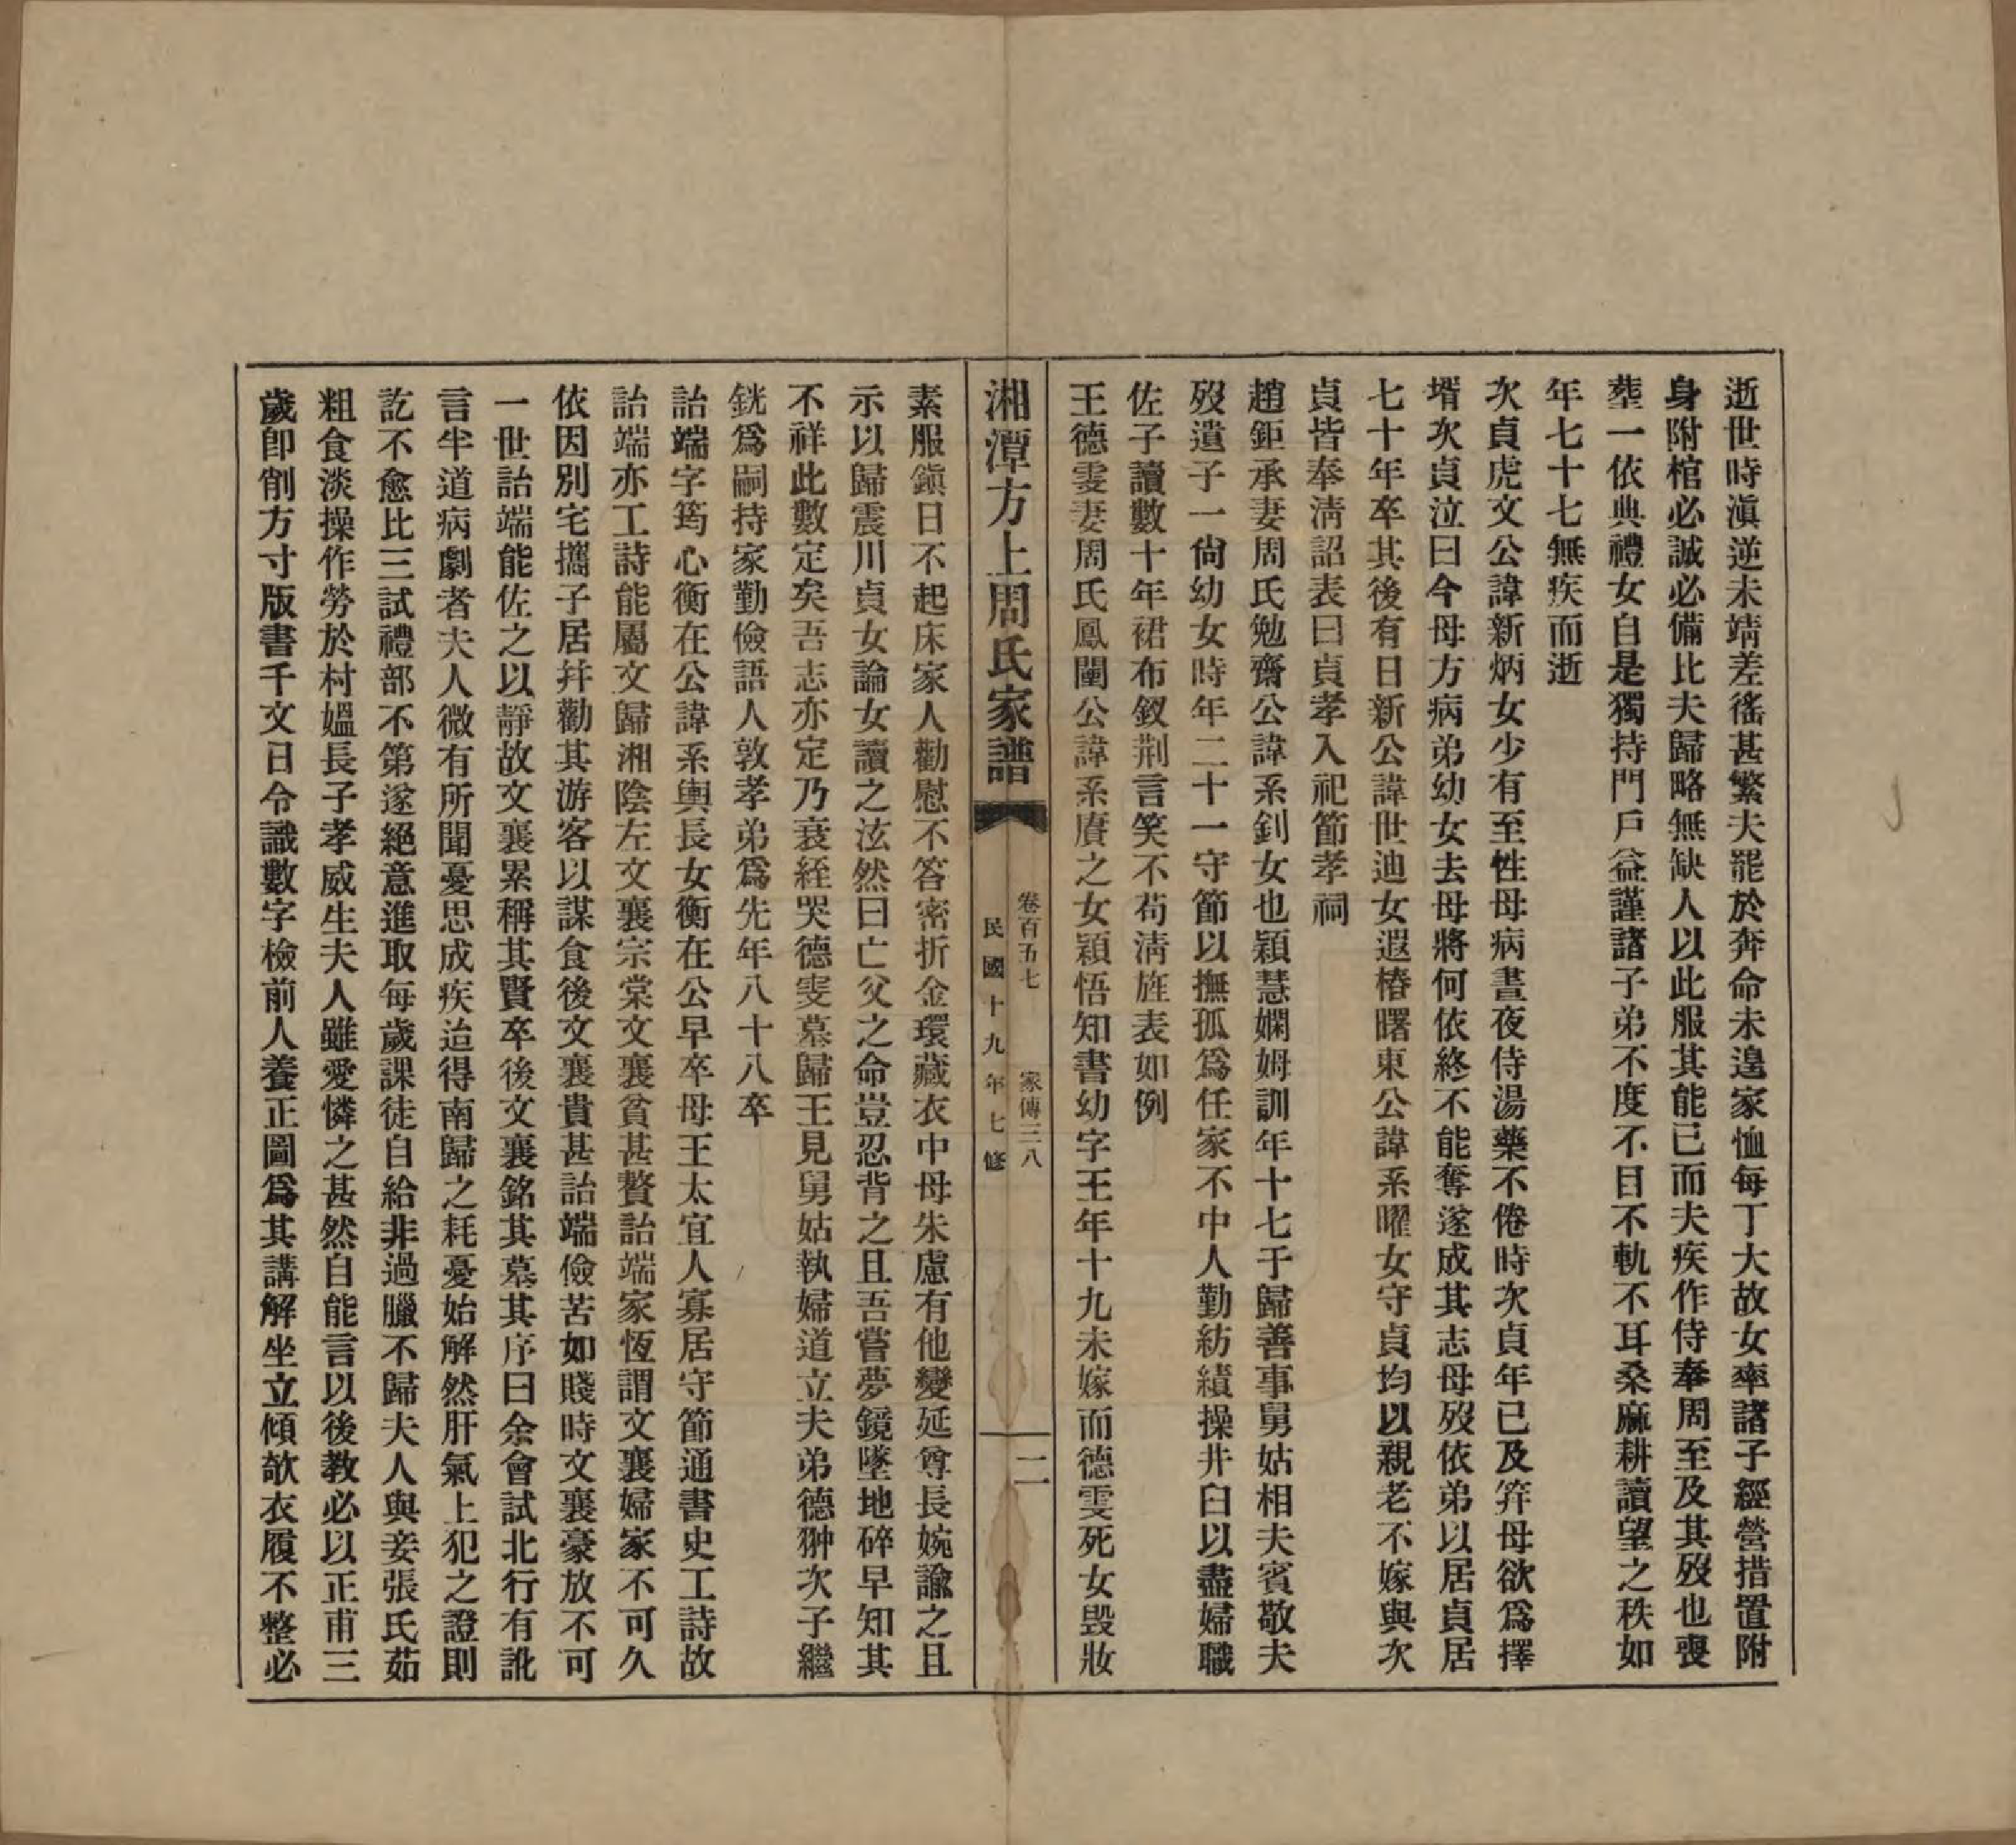 逝世時滇逆未靖差徭甚繁夫罷於奔命未遑家恤每丁大故女率諸子經營措置附
身附棺必誠必備比夫歸略無缺人以此服其能已而夫疾作侍奉周至及其歿也喪
葬一依典禮女自是獨持門戶益謹諸子弟不度不目不軌不耳桑麻耕讀望之秩如
年七十七無疾而逝
次貞虎文公諱新炳女少有至性母病晝夜侍湯藥不倦時次貞年已及笄母欲爲擇
壻次貞泣曰今母方病弟幼女去母將何依終不能奪遂成其志母歿依弟以居貞居
七十年卒其後有日新公諱世迪女遐椿曙東公諱系曜女守貞均以親老不嫁與次
貞皆奉淸詔表曰貞孝入祀節孝祠
趙鉅承妻周氏勉齋公諱系釗女也穎慧嫻姆訓年十七于歸善事舅姑相夫賓敬夫
歿遺子一尙幼女時年二十一守節以撫孤爲任家不中人勤紡績操井臼以盡婦職
佐子讀數十年裙布釵荆言笑不苟淸旌表如例
王德雯妻周氏鳳闈公諱系賡之女穎悟知書幼字王年十九未嫁而德雯死女毀妝
湘潭方上周氏家譜
卷百五七 家傳三八
民國十九年七修
二
素服鎭日不起床家人勸慰不答密折金環藏衣中母朱慮有他變延尊長婉諭之且
示以歸震川貞女論女讀之泫然曰亡父之命豈忍背之且吾嘗夢鏡墜地碎早知其
不祥此數定矣吾志亦定乃衰絰哭德雯墓歸王見舅姑執婦道立夫弟德翀次子繼
銧爲嗣持家勤儉語人敦孝弟爲先年八十八卒
詒端字筠心衡在公諱系輿長女衡在公早卒母王太宜人寡居守節通書史工詩故
詒端亦工詩能屬文歸湘陰左文襄宗棠文襄貧甚贅詒端家恆謂文襄婦家不可久
依因別宅攜子居幷勸其游客以謀食後文襄貴甚詒端儉苦如賤時文襄豪放不可
一世詒端能佐之以靜故文襄累稱其賢卒後文襄銘其墓其序曰余會試北行有訛
言半道病劇者夫人微有所聞憂思成疾迨得南歸之耗憂始解然肝氣上犯之證則
訖不愈比三試禮部不第遂絕意進取每歲課徒自給非過臘不歸夫人與妾張氏茹
粗食淡操作勞於村媼長子孝威生夫人雖愛憐之甚然自能言以後教必以正甫三
歲卽削方寸版書千文日令識數字檢前人養正圖爲其講解坐立傾欹衣履不整必